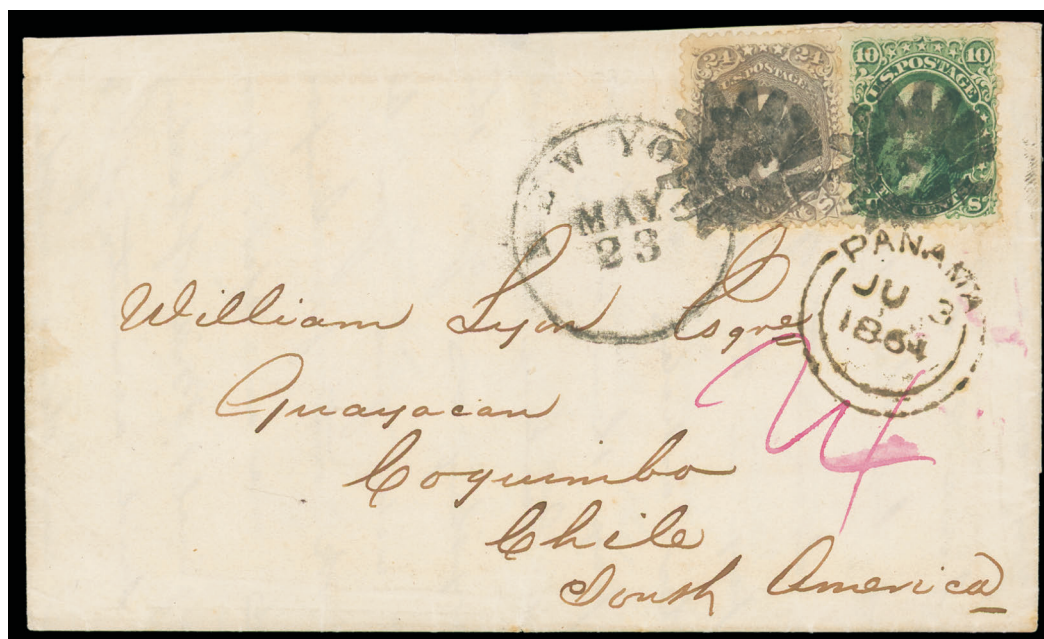 24 24
U.S. POSTAGE
10 10
U.S. POSTAGE
NEW YO
MAY
23
PANAMA
JU 3
1864
William Lyon Esqre
Guayacan
Coquimbo
Chile
South America